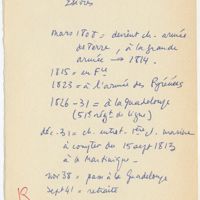 mars 1808 = devient ch. armée
de terre, à la grande
armée → 1814.
1815 = en Fce
1823 = à l'armée des Pyrénées
1826-31 = à la Guadeloupe
(51e régt de ligne)
déc. 31 = ch. entret. 1ère cl. marine
à compter du 15 sept 1813
à la Martinique
nov 38 = passe à la Guadeloupe
sept 41 = retraite